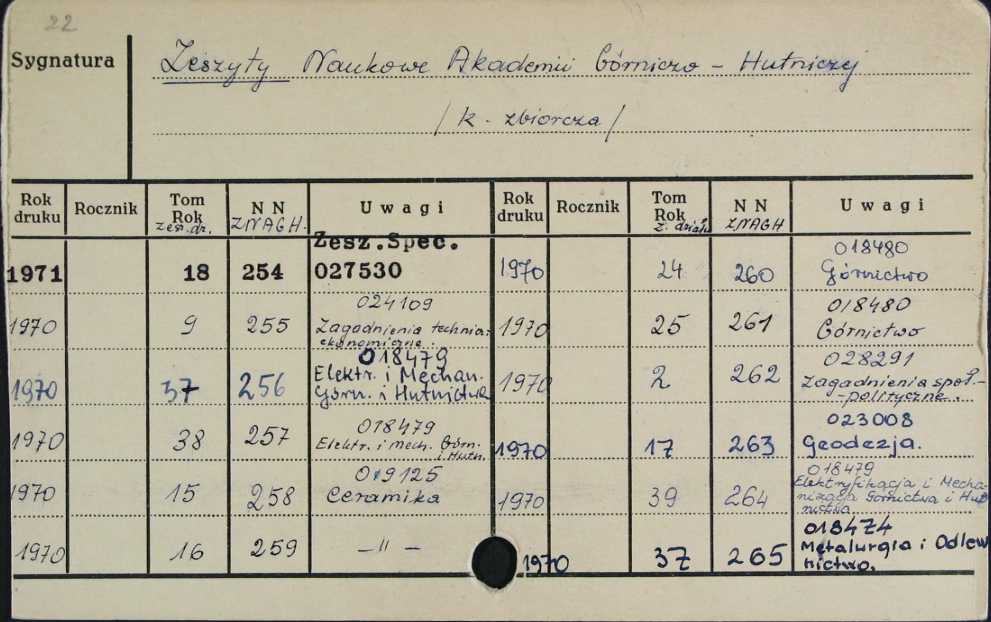 22
Sygnatura
Zeszyty Naukowe Akademii Górniczo - Hutniczej
/ k. zbiorcza /
Rok druku Rocznik Tom Rok zesz.dz. N N ZNAGH. Uwagi
1971 18 254 Zesz.Spec. 027530
1970 9 255 024109 Zagadnienia technicz. ekonomiczne.
1970 37 256 018479 Elektr. i Mechan. Górn. i Hutnictwa
1970 38 257 018479 Elektr. i mech. Górn. i Hutn.
1970 15 258 019125 Ceramika
1970 16 259 — " —
Rok druku Rocznik Tom Rok z. działu N N ZNAGH Uwagi
1970 24 260 018480 Górnictwo
1970 25 261 018480 Górnictwo
1970 2 262 028291 Zagadnienia społ.- -polityczne.
1970 17 263 023008 Geodezja.
1970 39 264 018479 Elektryfikacja i Mecha- nizacja Górnictwa i Hut- nictwa
1970 37 265 018474 Metalurgia i Odlew nictwo.